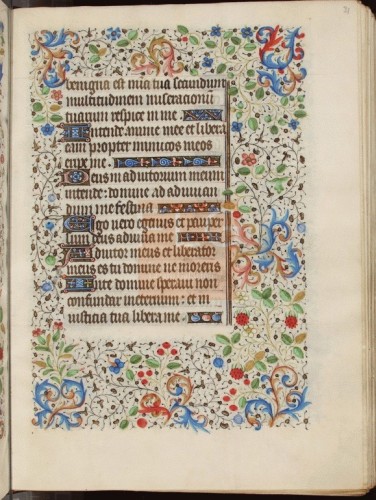 benigna est mia tua secundum
multitudinem miseracionū
tuarum respice in me.
Intende anime mee et libera
eam propter inimicos meos
eripe me.
Deus in adiutorium meum
intende: domine ad adiuuan
dum me festina
Ego vero egenus et pauper
sum deus adiuua me
Adiutor meus et liberator
meus es tu domine ne moreris
In te domine speraui non
confundar ineternum: et in
iusticia tua libera me.